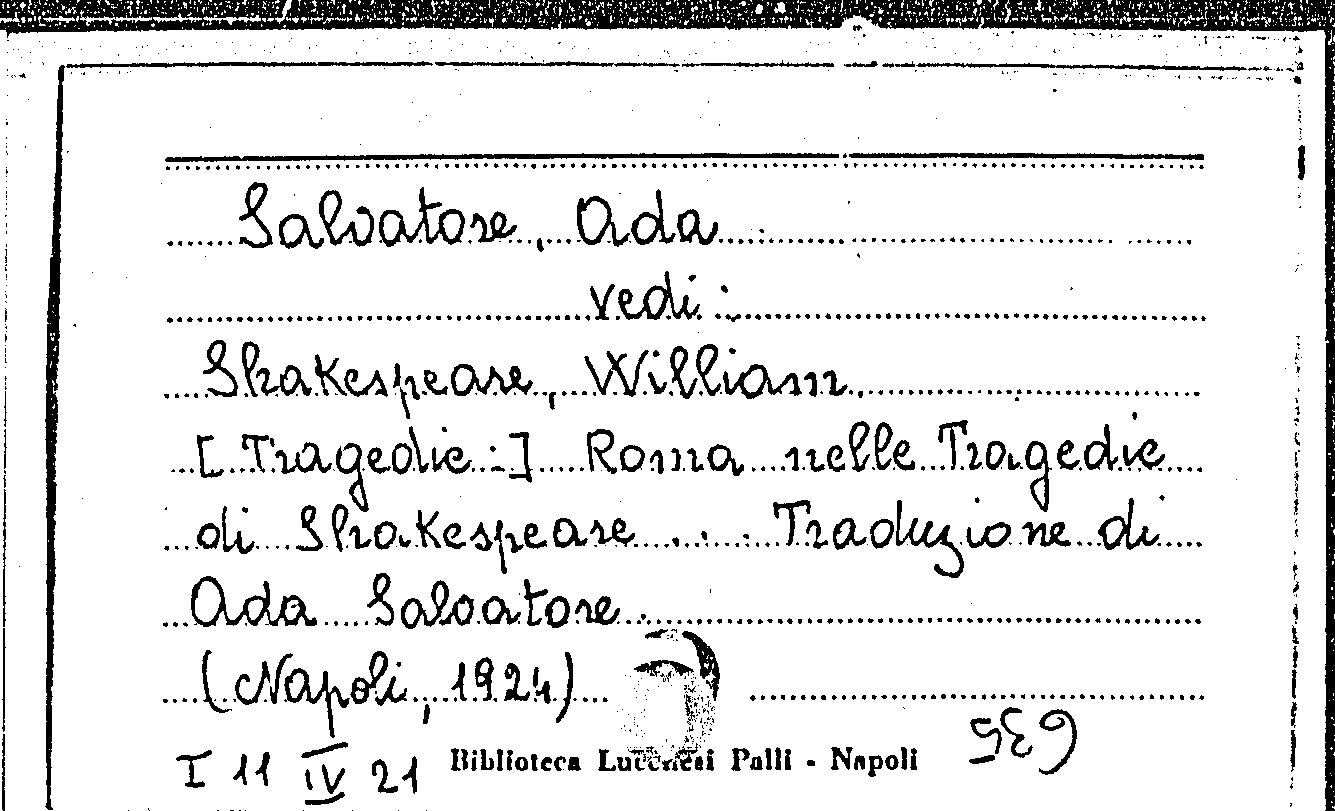 Salvatore, Ada
vedi:
Shakespeare, William
[Tragedie:] Roma nelle Tragedie
di Shakespeare... Traduzione di
Ada Salvatore.
(Napoli, 1924)
I 11 IV 21 Biblioteca Lucchesi Palli - Napoli 635